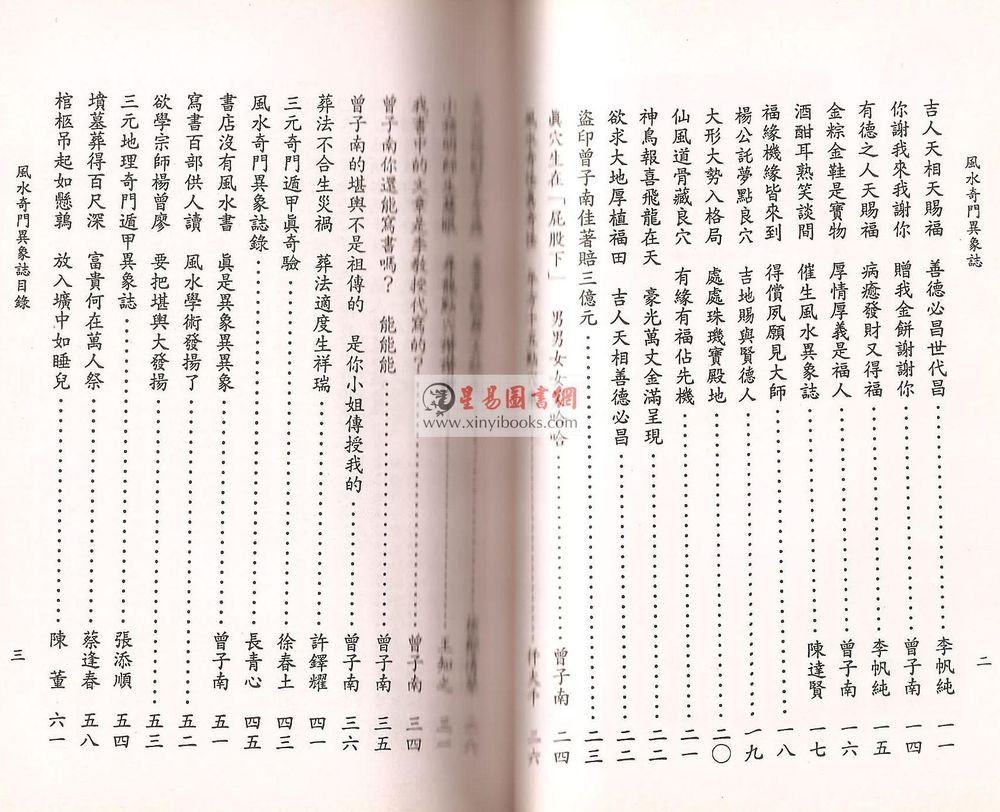 風水奇門異象誌
二
吉人天相天賜福　善德必昌世代昌…李帆純　一一
你謝我來我謝你　贈我金餅謝謝你…曾子南　一四
有德之人天賜福　病癒發財又得福…李帆純　一五
金棕金鞋是寶物　厚情厚義是福人…曾子南　一六
酒酣耳熟笑談間　催生風水異象誌…陳達賢　一七
福緣機緣皆來到　得償夙願見大師…一八
楊公託夢點良穴　吉地賜與賢德人…一九
大形大勢入格局　處處珠璣寶殿地…二〇
仙風道骨藏良穴　有緣有福佔先機…二一
神鳥報喜飛龍在天　豪光萬丈金滿呈現…二二
欲求大地厚植福田　吉人天相善德必昌…二二
盜印曾子南佳著賠三億元…二三
眞穴生在「屁股下」　男男女女哈哈…曾子南　二四
二六
我書中的文章是李教授代寫的？…曾子南　三四
曾子南你還能寫書嗎？　能能能…曾子南　三五
曾子南的堪輿不是祖傳的　是你小姐傳授我的…曾子南　三六
葬法不合生災禍　葬法適度生祥瑞…許鐸耀　四一
三元奇門遁甲眞奇驗…徐春土　四三
風水奇門異象誌錄…長青心　四五
書店沒有風水書　眞是異象異異象…曾子南　五一
寫書百部供人讀　風水學術發揚了…五二
欲學宗師楊曾廖　要把堪輿大發揚…五三
三元地理奇門遁甲異象誌…張添順　五四
墳墓葬得百尺深　富貴何在萬人祭…蔡逢春　五八
棺柩吊起如懸鶉　放入壙中如睡兒…陳　董　六一
風水奇門異象誌目錄
三
星易圖書網
www.xinyibooks.com